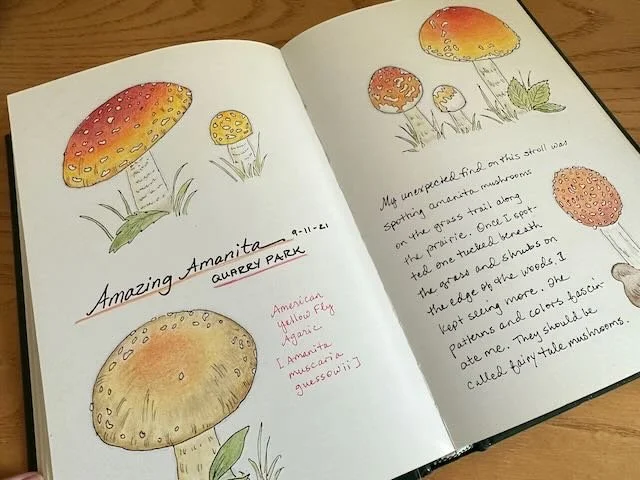 Amazing Amanita 9-11-21
QUARRY PARK
American
Yellow Fly
Agaric
[Amanita
muscaria
guessowii]
My unexpected find on this stroll was
spotting amanita mushrooms
on the grass trail along
the prairie. Once I spot-
ted one tucked beneath
the grass and shrubs on
the edge of the woods, I
kept seeing more. The
patterns and colors fascin-
ate me. They should be
called fairy tale mushrooms.